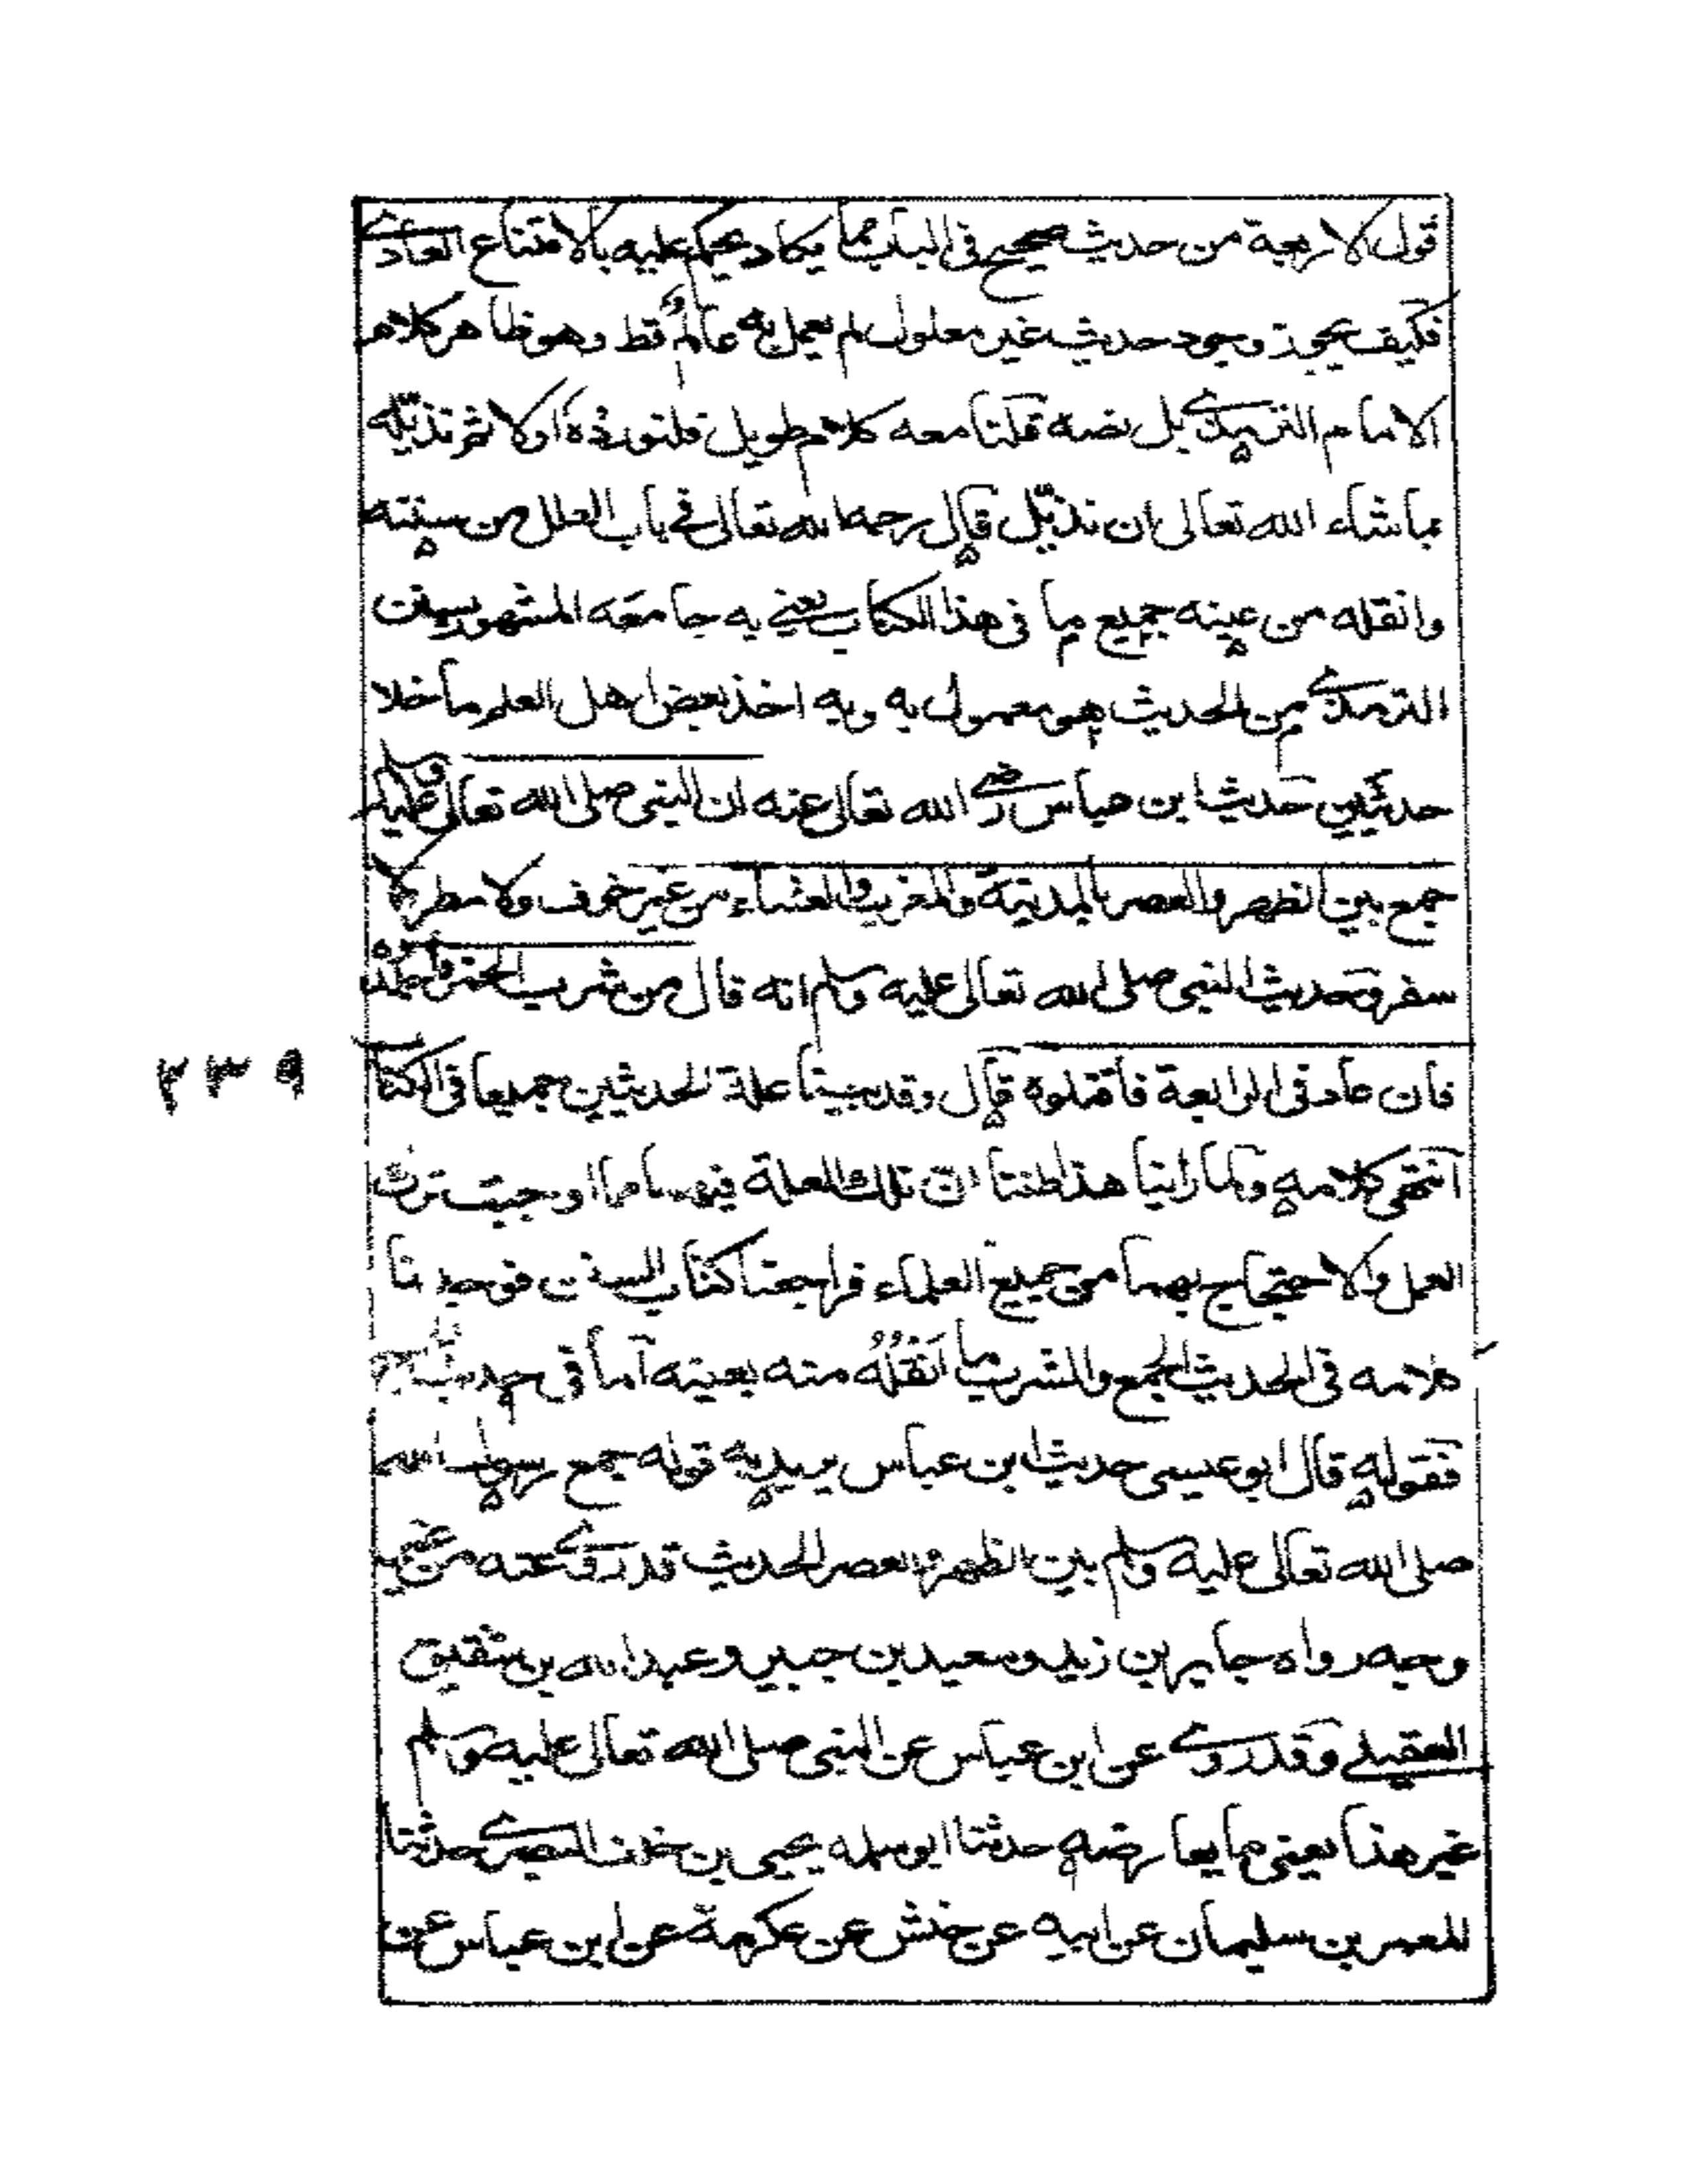 قول الاربعة من حديث صحيح فى الباب مما يكاد يحكم عليه بالامتناع العادى
فكيف يجوز وجود حديث غير معلول لم يعمل به عالم قط وهو ظاهر كلام
الامام الترمذى بل نصه قلنا معه كلام طويل فلنورده اولا ثم نذيله
بما شاء الله تعالى ان نذيل قال رحمه الله تعالى فى باب العلل من سننه
وانقله من عينه جميع ما فى هذا الكتاب يعنى به جامعه المشهور بسنن
الترمذى من الحديث هو معمول به وبه اخذ بعض اهل العلم ما خلا
حديثين حديث ابن عباس رضى الله تعالى عنه ان النبى صلى الله تعالى عليه وسلم
جمع بين الظهر والعصر بالمدينة والمغرب والعشاء من غير خوف ولا مطر ولا
سفر وحديث النبى صلى الله تعالى عليه وسلم انه قال من شرب الخمر فاجلدوه
فان عاد فى الرابعة فاقتلوه قال وقد بينا علة الحديثين جميعا فى الكتا
٢٣٩
انتهى كلامه ولما راينا هذا ظننا ان تلك العلة فيهما ما اوجبت ترك
العمل والاحتجاج بهما من جميع العلماء فراجعنا كتاب السنن فوجدنا
كلامه فى الحديث الجمع والشرب ما انقله منه بعينه اما فى حديث
فقوله قال ابو عيسى حديث ابن عباس يريد به قوله جمع رسول الله
صلى الله تعالى عليه وسلم بين الظهر والعصر الحديث قد روى عنه من غير
وجه رواه جابر بن زيد وسعيد بن جبير وعبد الله بن شقيق
العقيلى وقد روى عن ابن عباس عن النبى صلى الله تعالى عليه وسلم
غير هذا يعنى ما يعارضه حدثنا ابو سلمه يحيى بن خلف البصرى حدثنا
المعمر بن سليمان عن ابيه عن حنش عن عكرمة عن ابن عباس عن